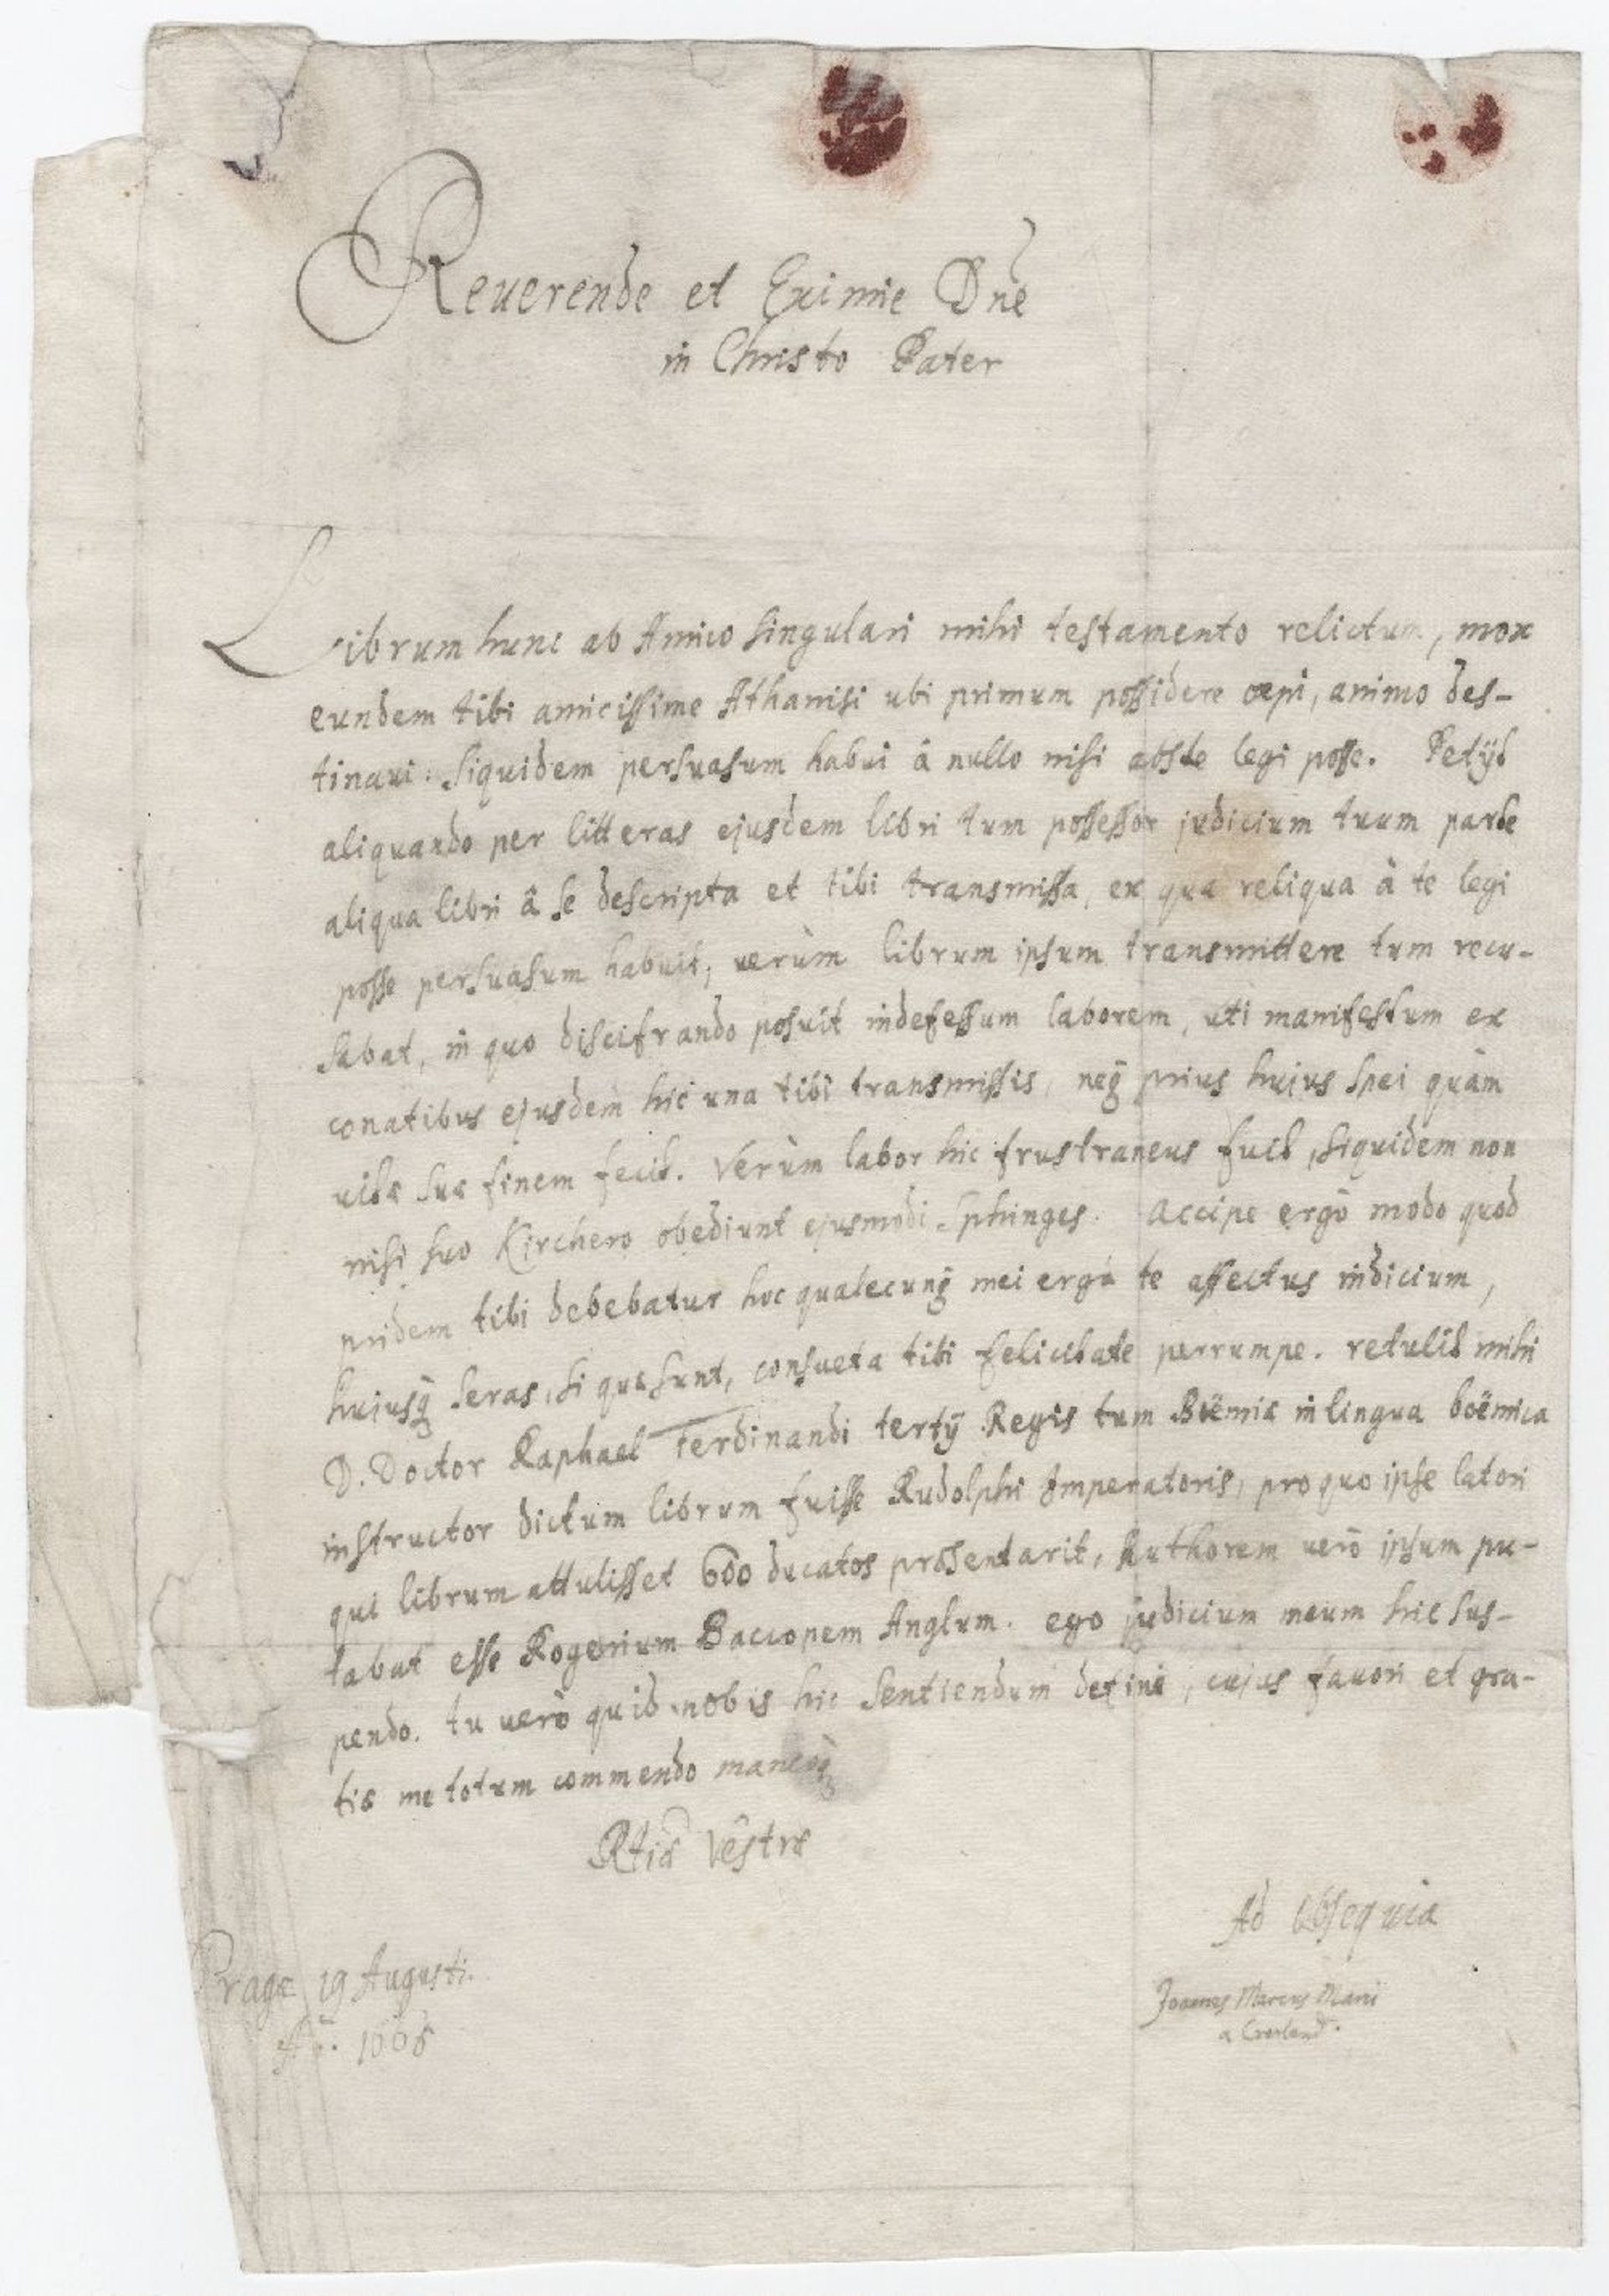 Reuerende et Eximie Dne
in Christo Pater
Librum hunc ab Amico singulari mihi testamento relictum, mox
eundem tibi amicissime Athanisi ubi primum possidere cœpi, animo des-
tinaui: siquidem persuasum habui à nullo nisi abs te legi posse. Petijt
aliquando per litteras ejusdem libri tum possessor judicium tuum parte
aliqua libri à se descripta et tibi transmissa, ex qua reliqua à te legi
posse persuasum habuit; uerùm librum ipsum transmittere tum recu-
sabat, in quo discifrando posuit indefessum laborem, uti manifestum ex
conatibus ejusdem hic una tibi transmissis, neq̃ prius huius spei quàm
uitæ suæ finem fecit. Verùm labor hic frustraneus fuit, siquidem non
nisi suo Kirchero obediunt ejusmodi Sphinges. Accipe ergò modò quod
pridem tibi debebatur hoc qualecunq̃ mei ergà te affectus indicium,
huiusq̃ seras, si quæ sunt, consueta tibi felicitate perrumpe. retulit mihi
D. Doctor Raphael Ferdinandi tertij Regis tum Boëmiæ in lingua boëmica
instructor dictum librum fuisse Rudolphi Imperatoris, pro quo ipse latori
qui librum attulisset 600 ducatos præsentarit, Authorem uerò ipsum pu-
tabat esse Rogerium Bacconem Anglum. ego judicium meum hic sus-
pendo. tu uerò quid nobis hic sentiendum defini, cujus fauori et gra-
tiæ me totum commendo maneoq̃
Rtiæ Vestræ
Ad Obsequia
Joannes Marcus Marci
a Cronland.
Pragæ 19 Augusti.
Ao. 1665